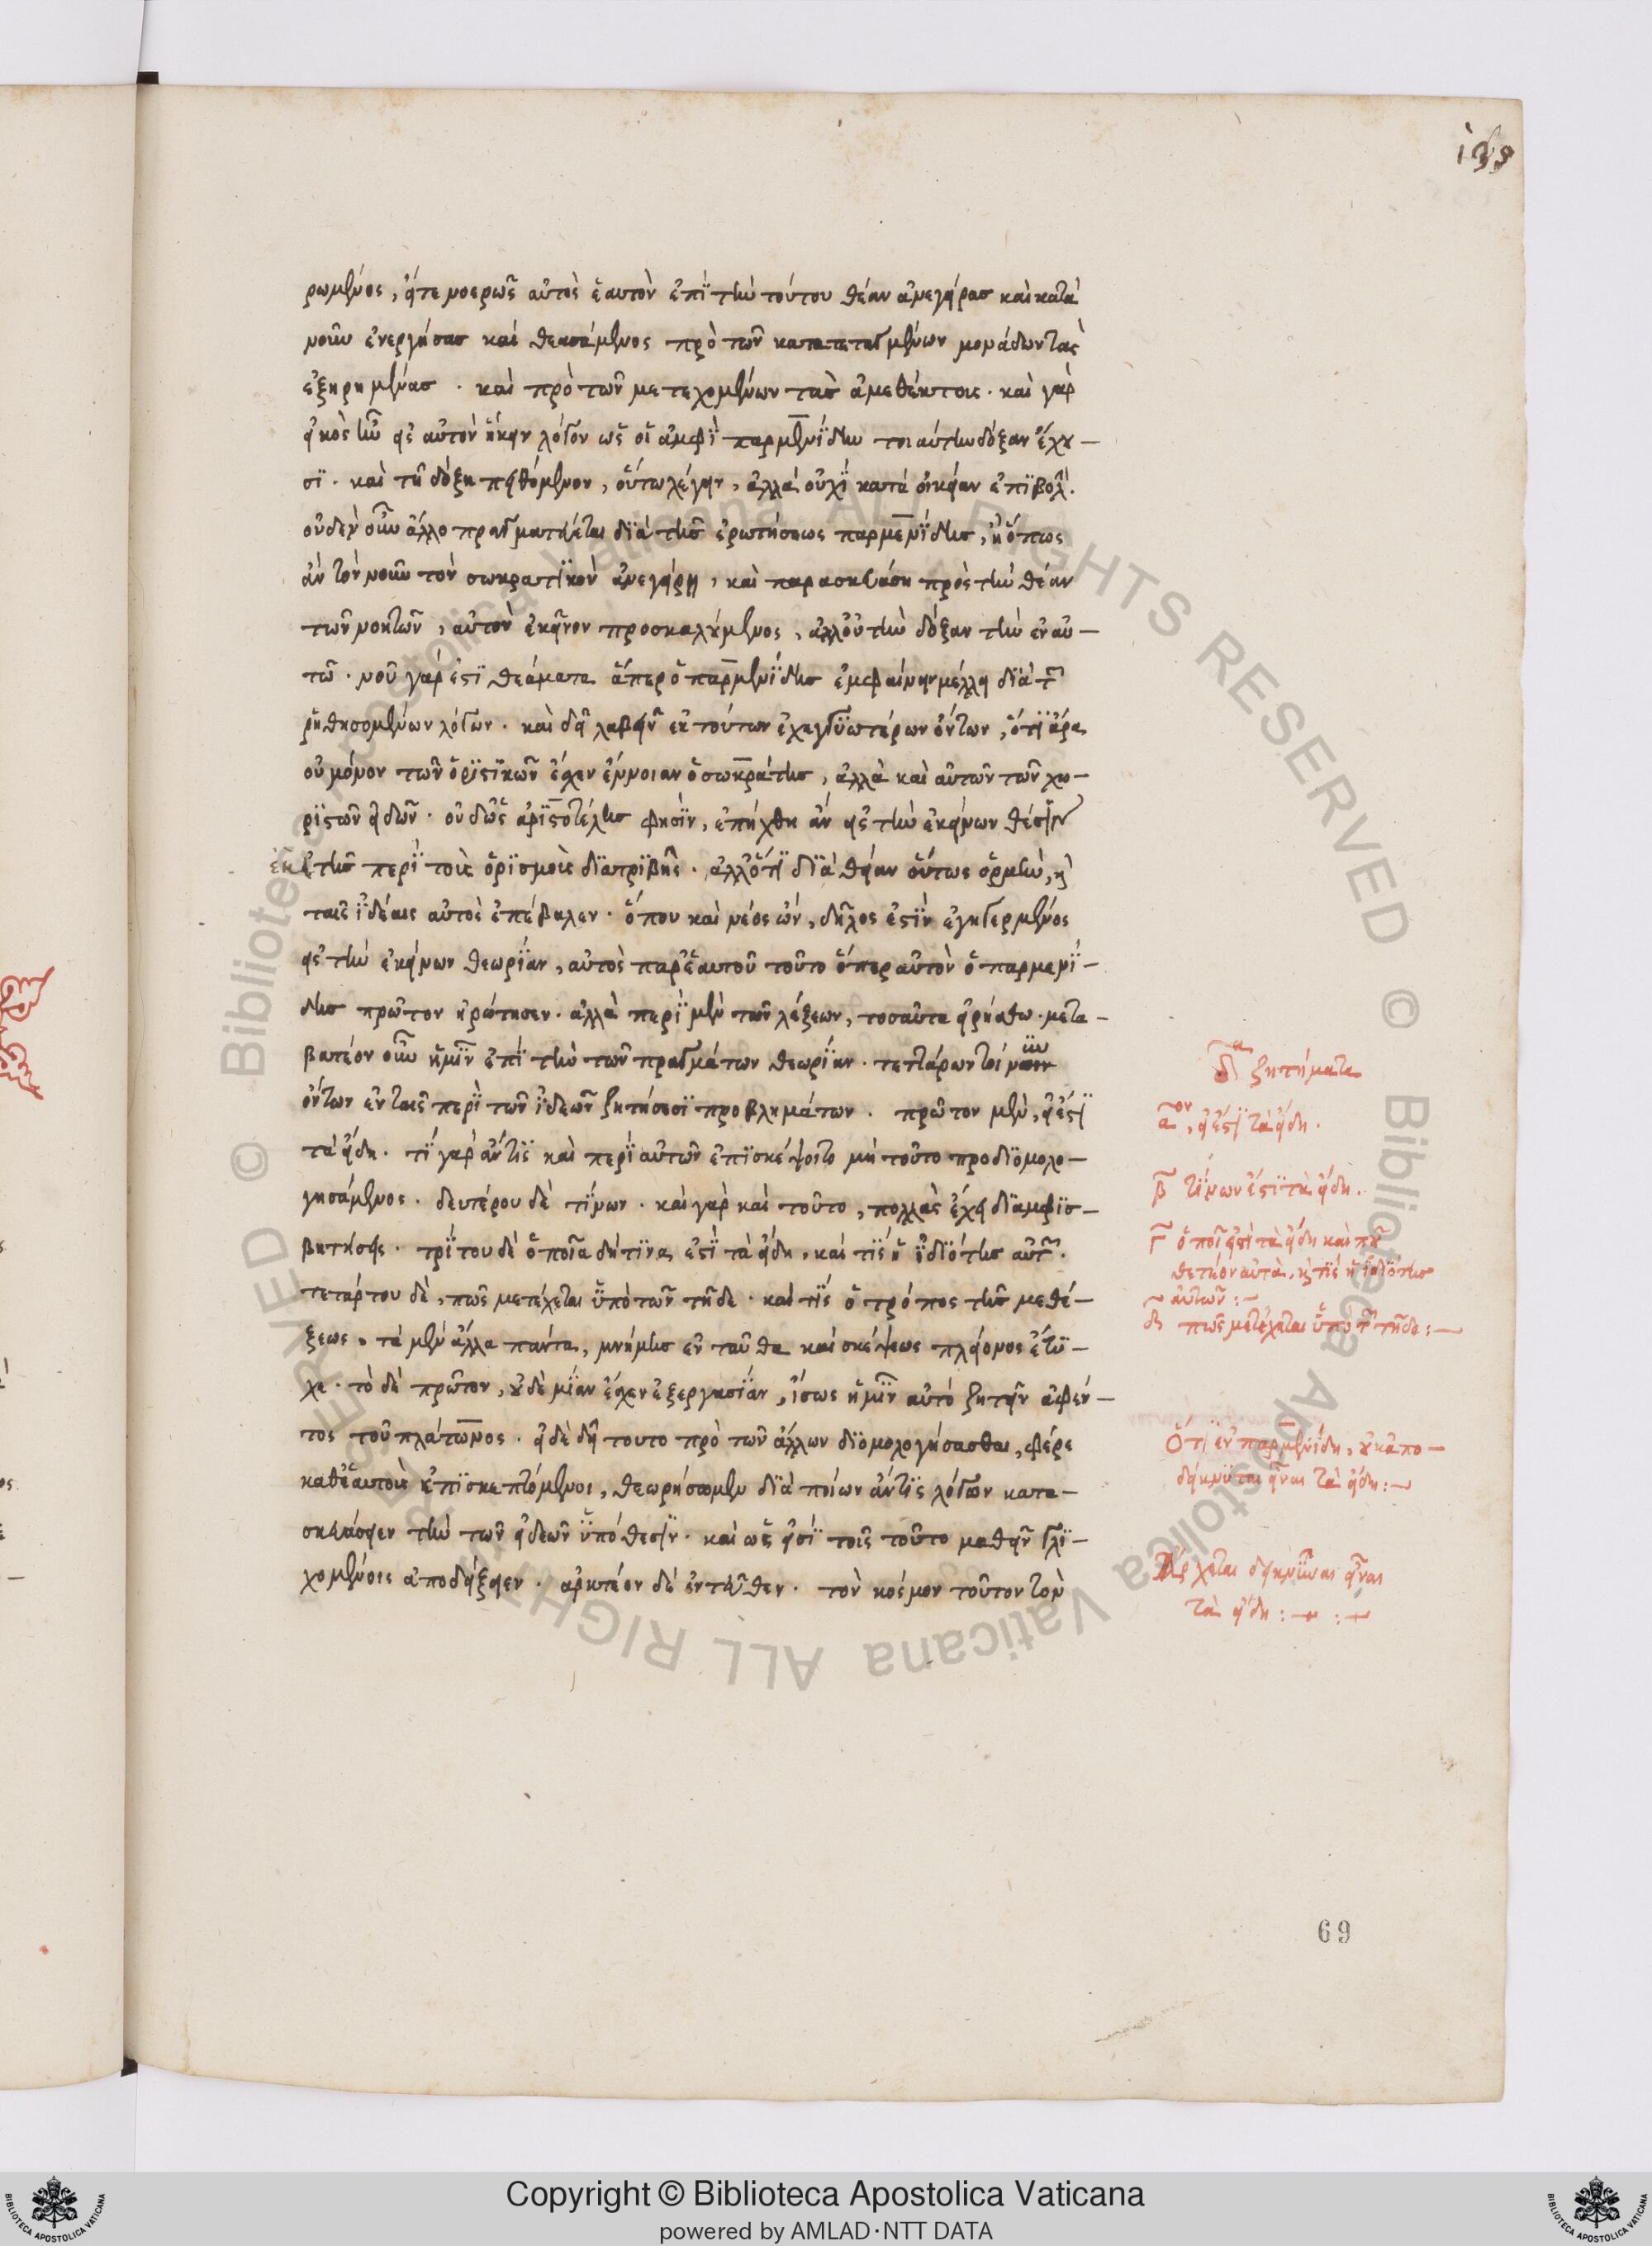 ρωμένος, εἴτε νοερῶς αὐτὸς ἑαυτὸν ἐπὶ τὴν τούτου θέαν ἀνεγείρας καὶ κατὰ
νοῦν ἐνεργήσας καὶ θεασάμενος πρὸ τῶν κατατεταγμένων μονάδων τὰς
ἐξῃρημένας . καὶ πρὸ τῶν μετεχομένων τὰς ἀμεθέκτους . καὶ γὰρ
εἰκὸς ἦν εἰς αὐτὸν ἥκειν λόγον ὡς οἱ ἀμφὶ παρμενίδην τοιαύτην δόξαν ἔχου–
σι . καὶ τῇ δόξῃ πειθόμενον, οὕτω λέγειν, ἀλλὰ οὐχὶ κατὰ οἰκείαν ἐπιβολὴν.
οὐδὲν οὖν ἄλλο πραγματεύεται διὰ τῆς ἐρωτήσεως παρμενίδης, ἢ ὅπως
ἂν τὸν νοῦν τὸν σωκρατικὸν ἀνεγείρῃ, καὶ παρασκευάσῃ πρὸς τὴν θέαν
τῶν νοητῶν, αὐτὸν ἐκεῖνον προσκαλούμενος, ἀλλ' οὐ τὴν δόξαν τὴν ἐν αὐ–
τῶ . νοῦ γάρ ἐστι θεάματα ἅπερ ὁ παρμενίδης ἐμφαίνειν μέλλει διὰ τῶν
ῥηθησομένων λόγων . καὶ δεῖ λαβεῖν ἐκ τούτων ἐχεγγυωτέρων ὄντων, ὅτι ἄρα
οὐ μόνον τῶν ὁριστικῶν ἔσχεν ἔννοιαν ὁ σωκράτης, ἀλλὰ καὶ αὐτῶν τῶν χω–
ριστῶν εἰδῶν . οὐδ' ὡς ἀριστοτέλης φησὶν, ἐπήχθη ἂν εἰς τὴν ἐκείνων θέσιν
ἐκ τῆς περὶ τοὺς ὁρισμοὺς διατριβῆς . ἀλλ' ὅτι διὰ θείαν οὕτως ὁρμὴν, καὶ
ταῖς ἰδέαις αὐτὸς ἐπέβαλεν . ὅπου καὶ νέος ὢν, δῆλος ἐστὶν ἐγηγερμένος
εἰς τὴν ἐκείνων θεωρίαν, αὐτὸς παρ' ἑαυτοῦ τοῦτο ὅπερ αὐτὸν ὁ παρμενί–
δης πρῶτον ἠρώτησεν . ἀλλὰ περὶ μὲν τῶν λέξεων, τοσαῦτα εἰρήσθω . μετα–
βατέον οὖν ἡμῖν ἐπὶ τὴν τῶν πραγμάτων θεωρίαν . τεττάρων τοίνυν
ὄντων ἐν ταῖς περὶ τῶν ἰδεῶν ζητήσεσι προβλημάτων . πρῶτον μὲν, εἰ ἔστι
τὰ εἴδη . τί γὰρ ἄν τις καὶ περὶ αὐτῶν ἐπισκέψοιτο μὴ τοῦτο προδιομολο–
γησάμενος . δευτέρου δὲ τίνων . καὶ γὰρ καὶ τοῦτο, πολλὰς ἔχει διαμφισ–
βητήσεις . τρίτου δὲ ὁποῖα δή τινα ἐστὶ τὰ εἴδη, καὶ τίς ἡ ἰδιότης αὐτῶν.
τετάρτου δὲ, πῶς μετέχεται ὑπὸ τῶν τῇδε . καὶ τίς ὁ τρόπος τῆς μεθέ–
ξεως . τὰ μὲν ἄλλα πάντα, μνήμης ἐνταῦθα καὶ σκέψεως πλείονος ἔτυ–
χε . τὸ δὲ πρῶτον, οὐδὲ μίαν ἔσχεν ἐξεργασίαν, ἴσως ἡμῖν αὐτὸ ζητεῖν ἀφέν–
τος τοῦ πλάτωνος . εἰ δὲ δεῖ τουτο πρὸ τῶν ἄλλων διομολογήσασθαι, φέρε
καθ' ἑαυτοὺς ἐπισκεπτόμενοι, θεωρήσωμεν διὰ ποίων ἄν τις λόγων κατα–
σκευάσειεν τὴν τῶν εἰδεῶν ὑπόθεσιν . καὶ ὡς εἰσὶ τοῖς τοῦτο μαθεῖν γλι–
χομένοις ἀποδείξειεν . ἀρκτέον δὲ ἐντεῦθεν . τὸν κόσμον τοῦτον τὸν
δ^α ζητήματα
α^ον, εἰ ἔστι τὰ εἴδη .
β τίνων ἐστὶ τὰ εἴδη .
γ ὁποῖα ἐστὶ τὰ εἴδη καὶ ποῦ
θετέον αὐτὰ, καὶ τίς ἡ ἰδιότης
αὐτῶν :–
δ πῶς μετέχεται ὑπὸ τῶν τῇδε :–
Ὅτι ἐν παρμενίδη, οὐκ ἀπο–
δείκνυται εἶναι τὰ εἴδη :–
Ἄρχεται δεικνῦναι εἶναι
τὰ εἴδη :– :–
69
Copyright © Biblioteca Apostolica Vaticana
powered by AMLAD·NTT DATA
© Biblioteca Apostolica Vaticana ALL RIGHTS RESERVED © Biblioteca Apostolica Vaticana ALL RIGHTS RESERVED